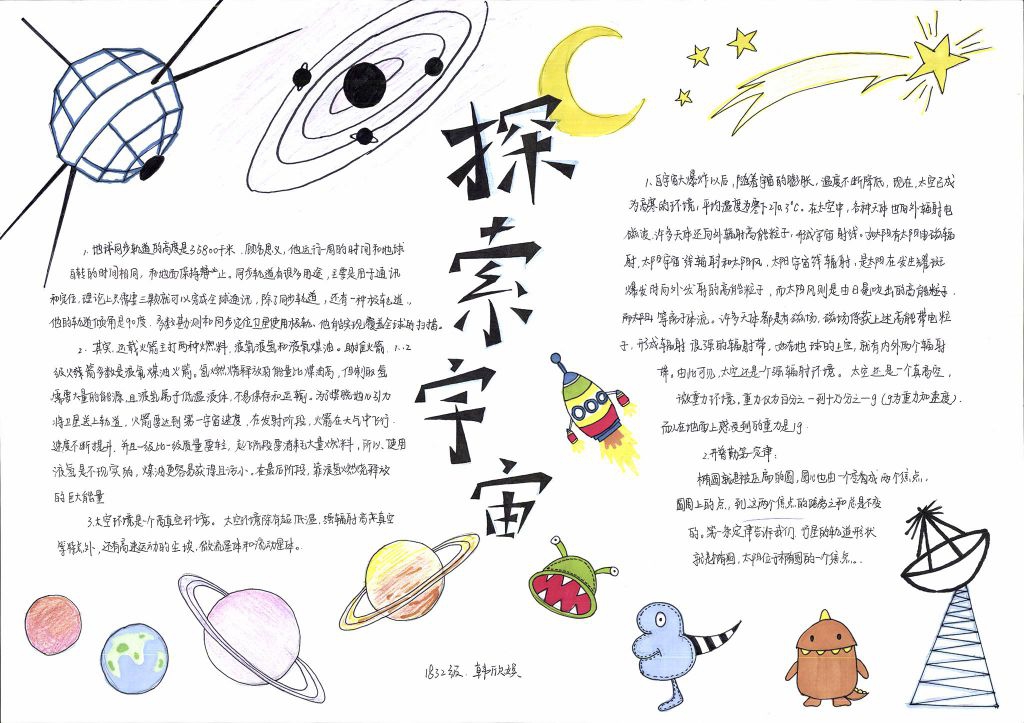 探索宇宙
1. 地球同步轨道的高度是35800千米，顾名思义，他运行一周的时间和地球
自转的时间相同，和地面保持静止。同步轨道有很多用途，主要是用于通讯
和定位，理论上只需要三颗就可以完成全球通讯，除了同步轨道，还有一种极轨道，
他的轨道倾角是90度，多数勘测和同步定位卫星使用极轨。他能实现覆盖全球的扫描。
2. 其实，运载火箭主打两种燃料，液氧液氢和液氧煤油。助推火箭，1、2
级火箭多数是液氧煤油火箭。氢燃烧释放的能量比煤油高，但制取氢
需要大量的能源，且液氢属于低温液体，不易保存和运输。为了摆脱地心引力
将卫星送上轨道，火箭要达到第一宇宙速度，在发射阶段，火箭在大气中飞行，
速度不断提升，并且一级比一级质量要轻，起飞阶段要消耗大量燃料，所以，使用
液氢是不现实的，煤油更容易获得且污小。在最后阶段，靠液氢燃烧释放
的巨大能量
3.太空环境是一个高真空环境。太空环境除有超低温，强辐射高真空
等特点外，还有高速运动的尘埃，微流星体和流动星体。
1.自宇宙大爆炸以后，随着宇宙的膨胀，温度不断降低，现在，太空已成
为高寒的环境，平均温度为零下270.3℃。在太空中，各种天体也向外辐射电
磁波，许多天体还向外辐射高能粒子，形成宇宙射线。如太阳有太阳电磁辐
射，太阳宇宙线辐射和太阳风，太阳宇宙线辐射，是太阳在发生耀斑
爆发时向外发射的高能粒子，而太阳风则是由日冕吹出的高能粒子
等离子体流。许多天体都具有磁场，磁场俘获上述高能带电粒
子，形成辐射很强的辐射带，如在地球的上空，就有内外两个辐射
带。由此可见，太空还是一个强辐射环境。太空还是一个真高空，
微重力环境，重力仅为百分之一到十万分之一g（g为重力加速度），
而人在地面上感受到的重力是1g.
2.开普勒第一定律：
椭圆就是被压扁的圆，圆心也由一个变成两个焦点，
圆周上的点，到这两个焦点的距离之和总是不变
的。第一条定律告诉我们，行星的轨道形状
就是椭圆，太阳位于椭圆的一个焦点。
1832级. 韩欣娱